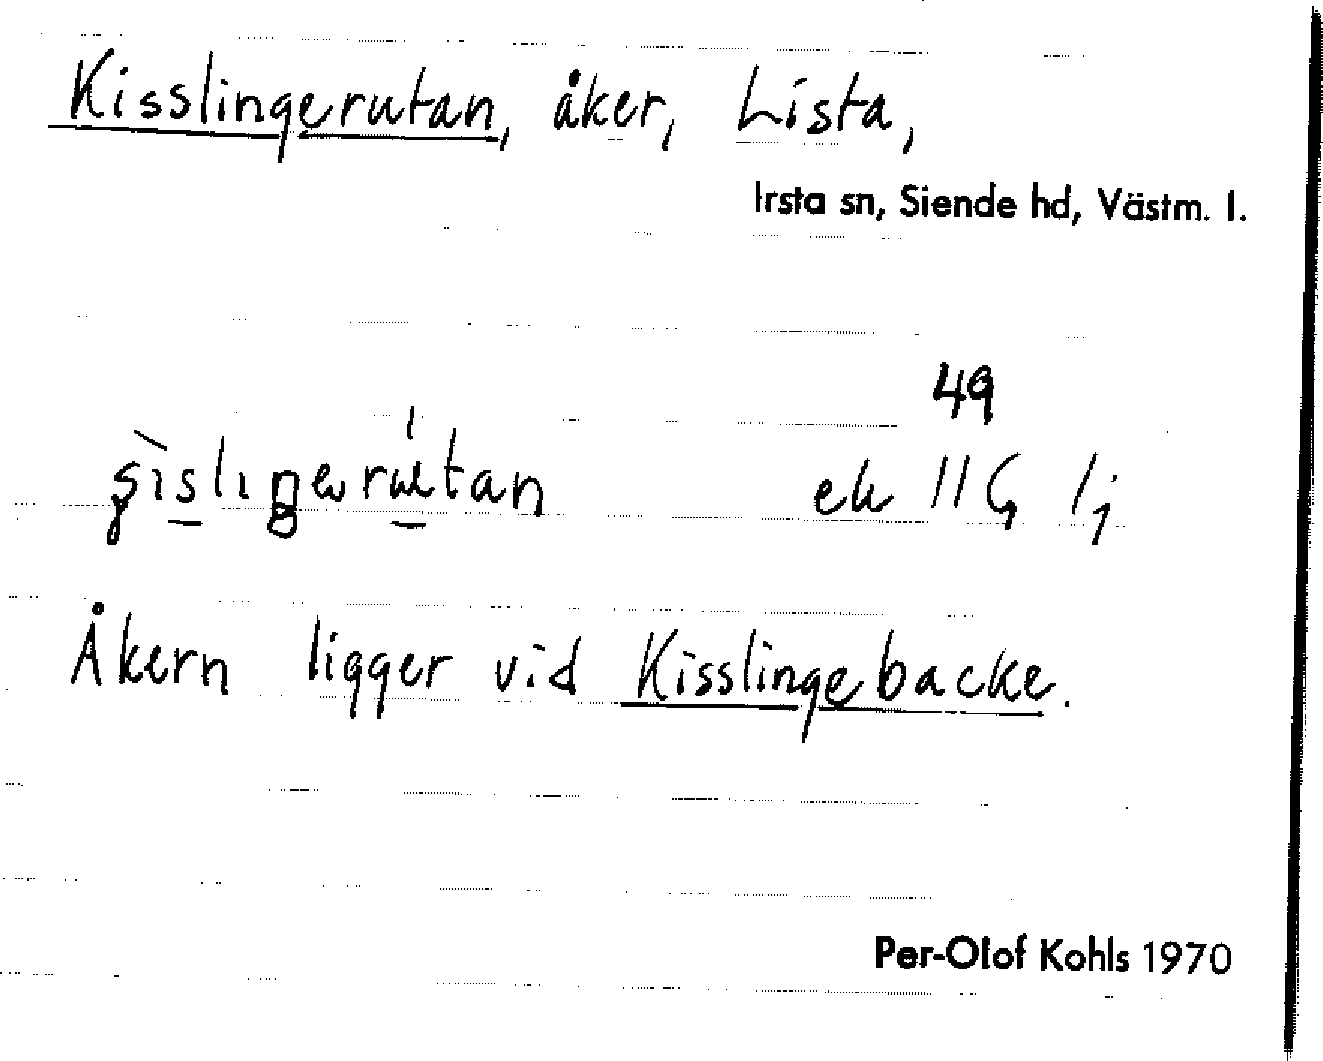 Kisslingerutan, åker, Lista,
Irsta sn, Siende hd, Västm. l.
49
ek 11G 1j
Åkern ligger vid Kisslingebacke.
Per-Olof Kohls 1970